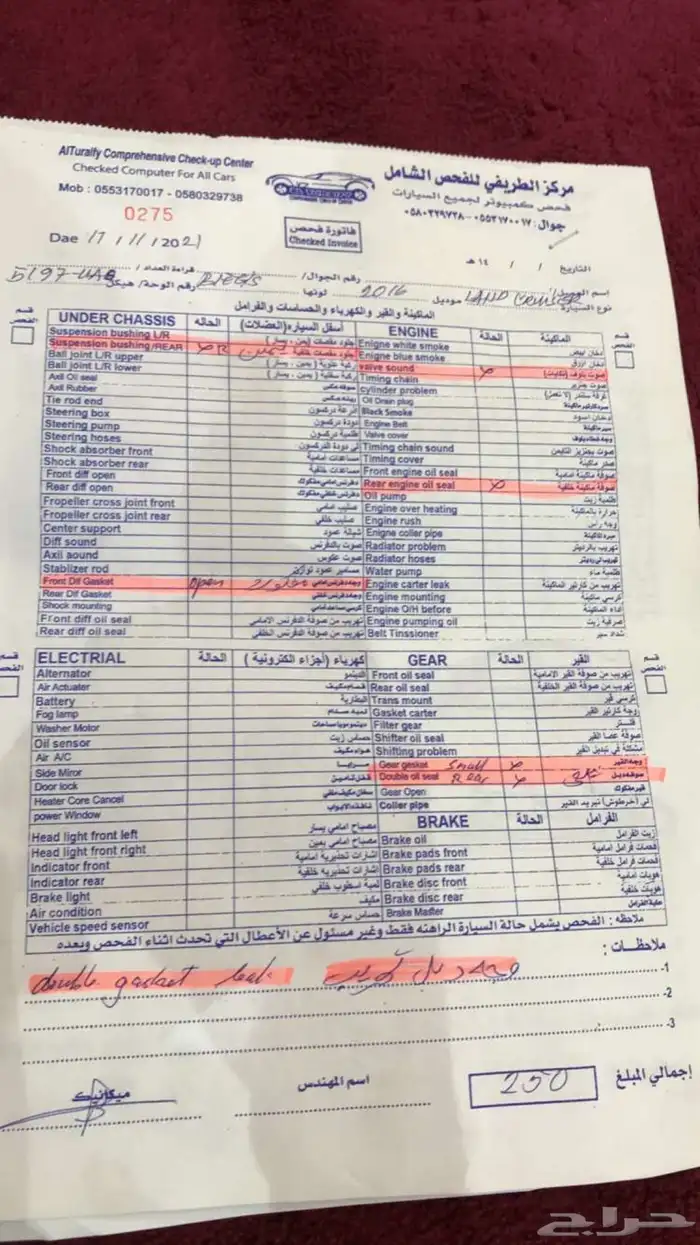 AlTuraify Comprehensive Check-up Center
Checked Computer For All Cars
Mob : 0553170017 - 0580329738
0275
مركز الطريفي للفحص الشامل
فحص كمبيوتر لجميع السيارات
جوال: ٠٥٥٣١٧٠٠١٧-٠٥٨٠٣٢٩٧٣٨
فاتورة فحص
Checked Invoice
Dae 17 / 11 / 2021
التاريخ / / ١٤ هـ
اسم العميل: رقم الجوال/ قراءة العداد/
نوع السيارة LAND CRUISER موديل 2016 لونها رقم الوحة/ هيكل
الماكينة والقير والكهرباء والحساسات والفرامل
UNDER CHASSIS الحاله أسفل السياره (العضلات) ENGINE الحالة الماكينة
قسم الفحص
Suspension bushing L/R جلود مقصات (يمن ، يسار) Enigne white smoke دخان ابيض
Suspension bushing/REAR جلود مقصات خلفية Enigne blue smoke دخان ازرق
Ball joint L/R upper valve sound صوت بلوف (تكايات)
Ball joint L/R lower Timing chain صوت جنزير
Axil Oil seal cylinder problem
Axil Rubber Oil Drain plug
Tie rod end Black Smoke دخان اسود
Steering box Engine Belt سير ماكينة
Steering pump Valve cover
Steering hoses Timing chain sound
Shock absorber front مساعدات امامية Timing cover صدر ماكينة
Shock absorber rear مساعدات خلفية Front engine oil seal صوفة ماكينة امامية
Front diff open Rear engine oil seal صوفة ماكينة خلفية
Rear diff open Oil pump طلمبة زيت
Fropeller cross joint front صليب امامي Engine over heating حرارة بالماكينة
Fropeller cross joint rear صليب خلفي Engine rush وجه راس
Center support شيالة عمود Enigne coller pipe
Diff sound صوت بالدفرنس Radiator problem تهريب بالرديتر
Axil aound صوت عكوس Radiator hoses
Stablizer rod مسامير عمود توازن Water pump طلمبة ماء
Front Dif Gasket open وجه دفرنس امامي Engine carter leak تهريب من كارتير الماكينة
Rear Dif Gasket وجه دفرنس خلفي Engine mounting كرسي ماكينة
Shock mounting كرسي مساعد امامي Engine O/H before اداء الماكينة
Front diff oil seal تهريب من صوفة الدفرنس الامامي Engine pumping oil صرفية زيت
Rear diff oil seal تهريب من صوفة الدفرنس الخلفي Belt Tinssioner شداد سير
ELECTRIAL الحالة كهرباء (أجزاء الكترونية) GEAR الحالة القير
قسم الفحص
Alternator الدينمو Front oil seal تهريب من صوفة القير الامامية
Air Actuater Rear oil seal تهريب من صوفة القير الخلفية
Battery البطارية Trans mount كرسي قير
Fog lamp Gasket carter وجه كارتير القير
Washer Motor Filter gear فلتر
Oil sensor حساس زيت Shifter oil seal صوفة عصا القير
Air A/C هواء مكيف Shifting problem مشكلة في تبديل القير
Side Miror مرايا Gear gesket small وجه القير
Door lock Double oil seal Rear صوفه دبل
Heater Core Cancel Gear Open قير مفكوك
power Window Coller pipe لي (خرطوش) تبريد القير
Head light front left مصباح امامي يسار BRAKE الحالة الفرامل
Head light front right مصباح امامي يمين Brake oil زيت الفرامل
Indicator front اشارات تحذيرية امامية Brake pads front فحمات فرامل امامية
Indicator rear اشارات تحذيرية خلفية Brake pads rear فحمات فرامل خلفية
Brake light لمبة اسطوب خلفي Brake disc front هوبات امامية
Air condition مكيف Brake disc rear هوبات خلفية
Vehicle speed sensor حساس سرعة Brake Master علبة الفرامل
ملاحظه : الفحص يشمل حالة السيارة الراهنه فقط وغير مسئول عن الأعطال التي تحدث اثناء الفحص وبعده
ملاحظات :
1- وجه دبل تهريب double gasket leak
2-
3-
إجمالي المبلغ 250
اسم المهندس
ميكانيك
حراج